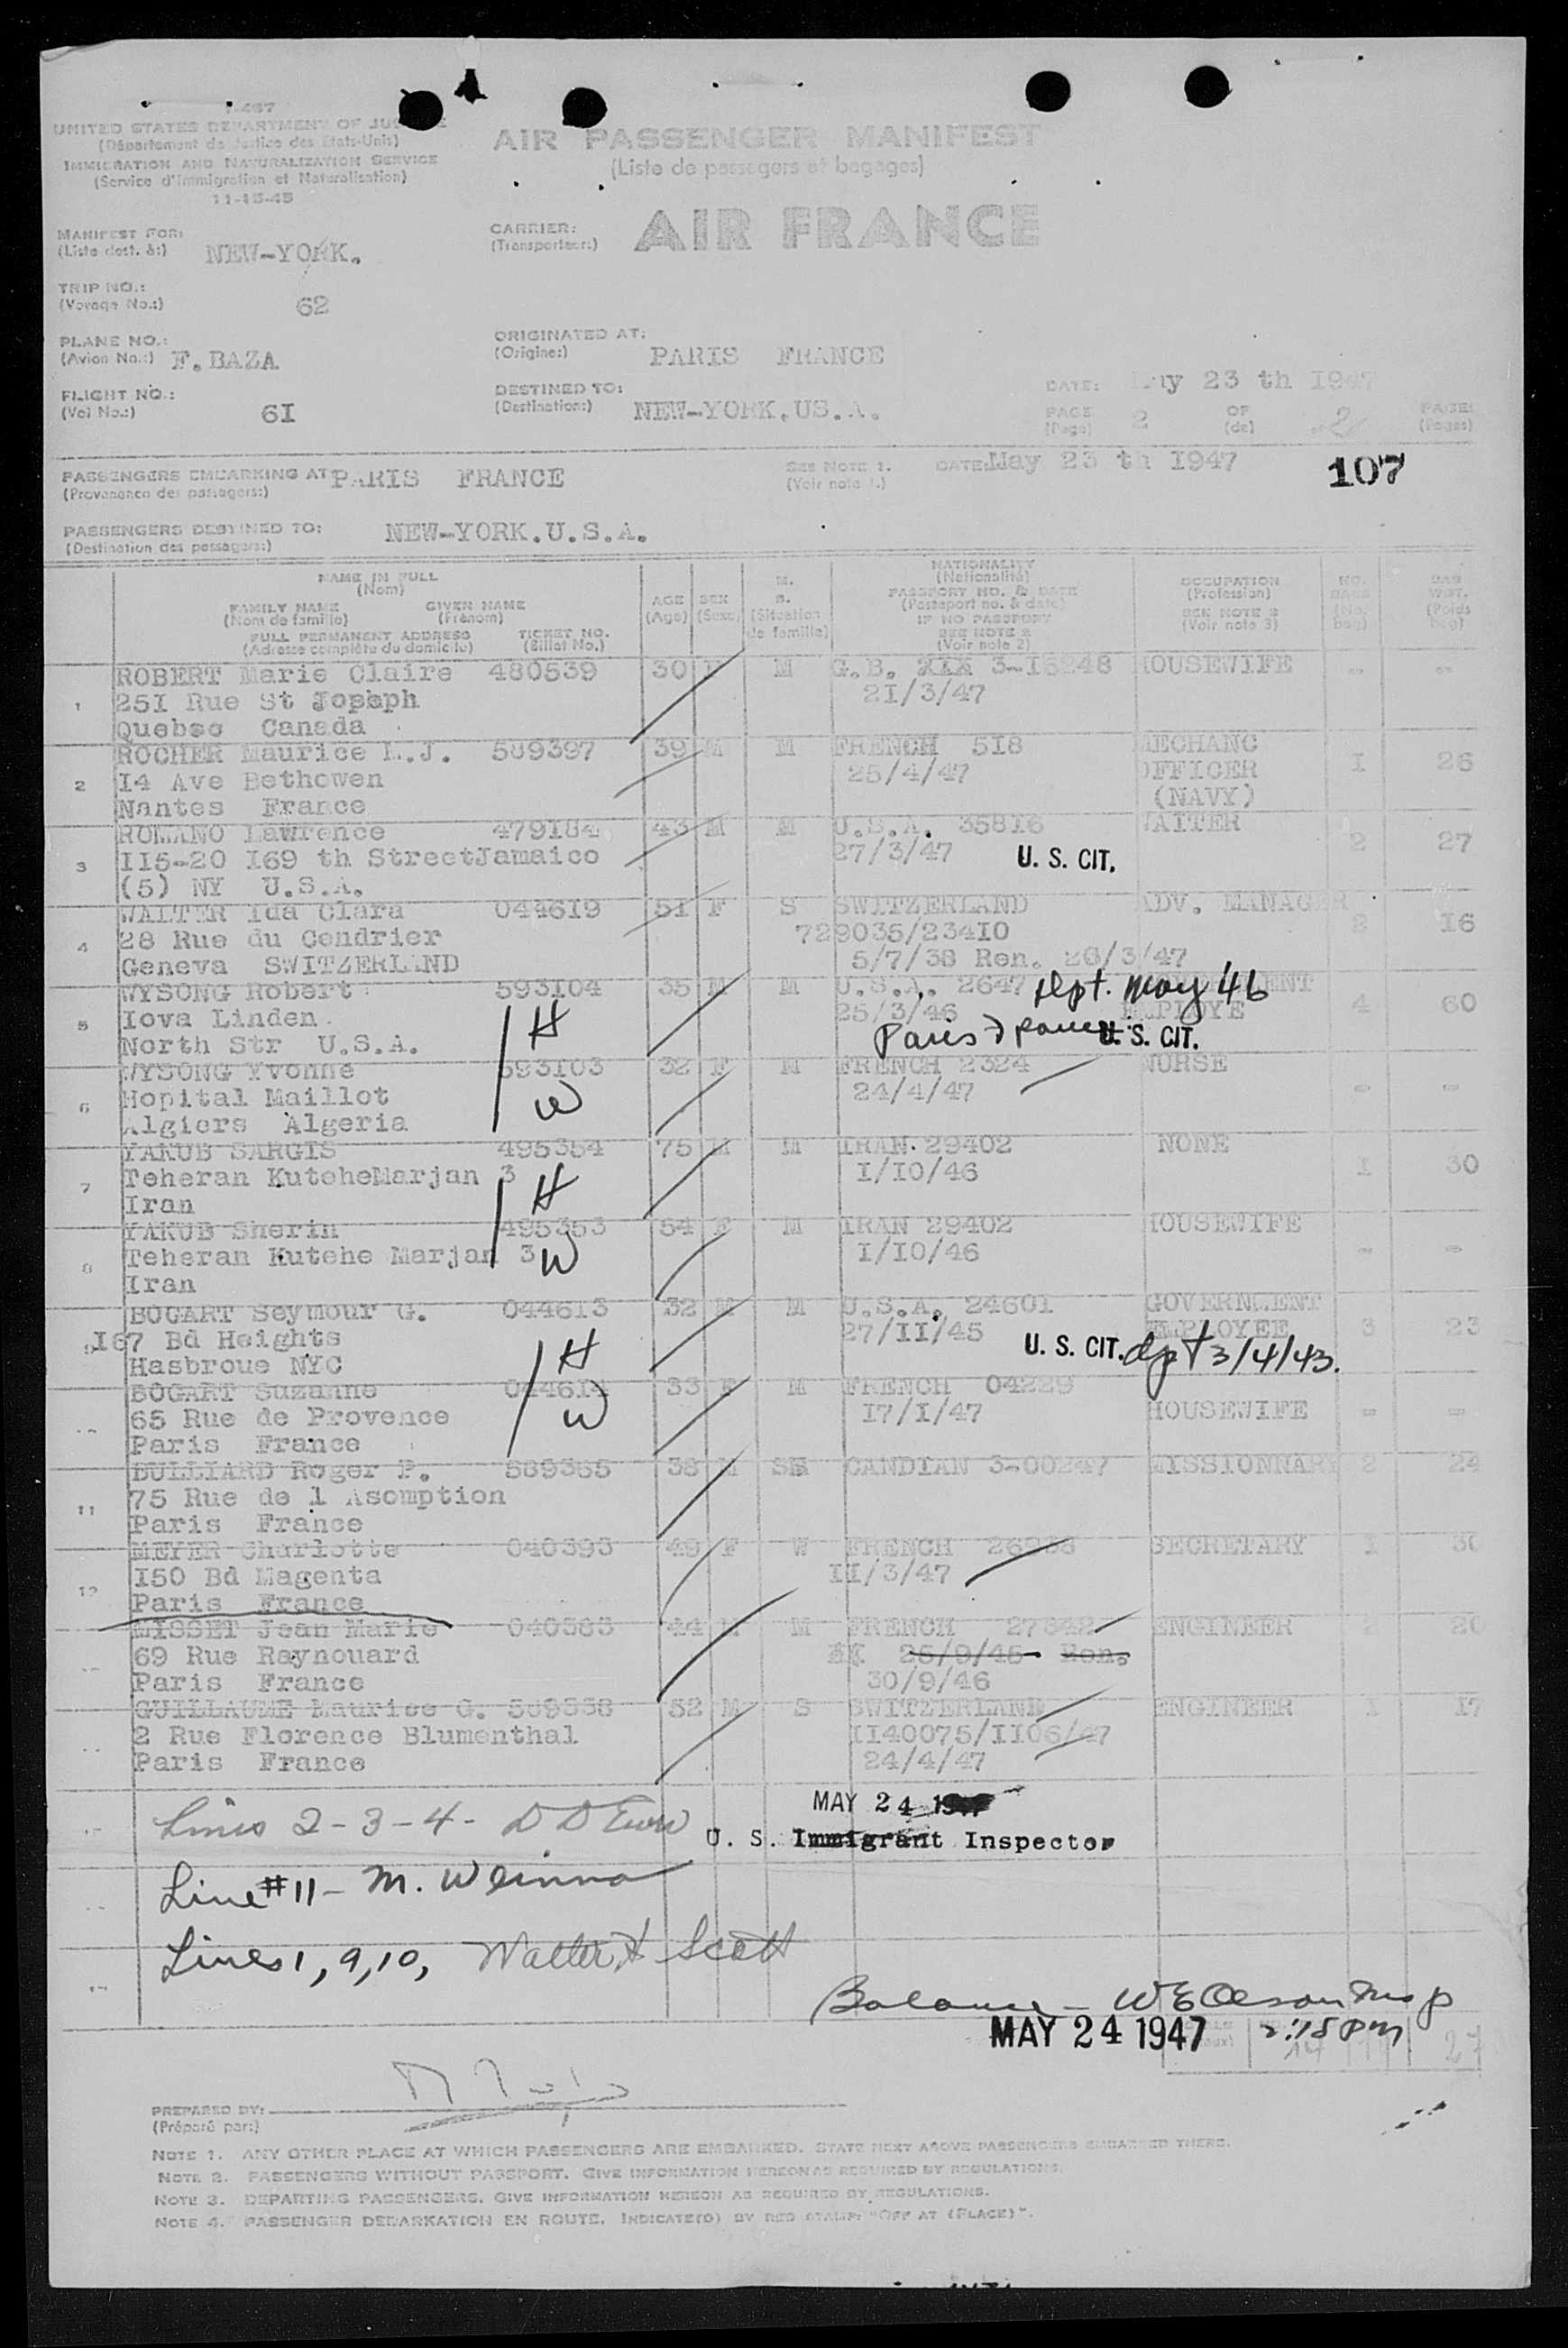 UNITED STATES DEPARTMENT OF JUSTICE
(Département de Justice des Etats-Unis)
IMMIGRATION AND NATURALIZATION SERVICE
(Service d'Immigration et Naturalisation)
11-15-45
AIR PASSENGER MANIFEST
(Liste de passagers et bagages)
MANIFEST FOR: NEW-YORK.
(Liste dest. à:)
CARRIER: AIR FRANCE
(Transporteur:)
TRIP NO.: 62
(Voyage No.:)
PLANE NO.: F.BAZA
(Avion No.:)
ORIGINATED AT: PARIS FRANCE
(Origine:)
FLIGHT NO.: 6I
(Vol No.:)
DESTINED TO: NEW-YORK.US.A.
(Destination:)
DATE: May 23 th 1947
PAGE 2 OF 2 PAGES
(Page) (de) (Pages)
PASSENGERS EMBARKING AT PARIS FRANCE
(Provenance des passagers:)
SEE NOTE 1. DATE: May 23 th I947
(Voir note 1.)
107
PASSENGERS DESTINED TO: NEW-YORK.U.S.A.
(Destination des passagers:)
NAME IN FULL
(Nom)
FAMILY NAME GIVEN NAME
(Nom de famille) (Prénom)
FULL PERMANENT ADDRESS TICKET NO.
(Adresse complète du domicile) (Billet No.)
AGE
(Age)
SEX
(Sexe)
M.
S.
(Situation
de famille)
NATIONALITY
(Nationalité)
PASSPORT NO. & DATE
(Passeport no. & date)
IF NO PASSPORT
SEE NOTE 2
(Voir note 2)
OCCUPATION
(Profession)
SEE NOTE 3
(Voir note 3)
NO.
BAGS
(No.
bag)
BAG
WGT.
(Poids
bag)
1 ROBERT Marie Claire 480539 30 F M G.B. XIX 3-I6248 HOUSEWIFE - -
25I Rue St Jopeph 2I/3/47
Quebec Canada
2 ROCHER Maurice L.J. 589397 39 M M FRENCH 5I8 MECHANC I 26
I4 Ave Bethowen 25/4/47 OFFICER
Nantes France (NAVY)
3 ROMANO Lawrence 479184 43 M M U.S.A. 358I6 WAITER 2 27
II5-20 I69 th StreetJamaico 27/3/47 U. S. CIT.
(5) NY U.S.A.
4 WALTER Ida Clara 044619 51 F S SWITZERLAND ADV. MANAGER 2 I6
28 Rue du Cendrier 729035/234I0
Geneva SWITZERLAND 5/7/38 Ren. 28/3/47
5 WYSONG Robert 593I04 35 M M U.S.A. 2647 dpt. may 46 4 60
Iova Linden H 25/3/46 EMPLOYE
North Str U.S.A. Paris U. S. CIT.
6 WYSONG Yvonne 593I03 32 F M FRENCH 2324 NURSE - -
Hopital Maillot W 24/4/47
Algiers Algeria
7 YAKUB SARGIS 495354 75 M M IRAN 29402 NONE I 30
Teheran KuteheMarjan 3 I/I0/46
Iran H
8 YAKUB Sherin 495353 54 F M IRAN 29402 HOUSEWIFE - -
Teheran Kutehe Marjan 3 W I/I0/46
Iran
9 BOGART Seymour G. 044613 32 M M U.S.A. 2460I GOVERNMENT 3 23
I67 Bd Heights H 27/II/45 EMPLOYEE
Hasbroue NYC U. S. CIT. dpt 3/4/43.
BOGART Suzanne 044614 33 F M FRENCH 04229
65 Rue de Provence W I7/I/47 HOUSEWIFE - -
Paris France
11 BULLIARD Roger P. 589365 38 M CANDIAN 3-00247 MISSIONNARY 2 24
75 Rue de l Asomption
Paris France
12 MEYER Charlotte 040393 49 F W FRENCH SECRETARY 1
I50 Bd Magenta II/3/47
Paris France
MISSET Jean Marie 040383 44 M M FRENCH 27842 ENGINEER 2 20
69 Rue Raynouard 25/9/45 Ren.
Paris France 30/9/46
GUILLAUME Maurice G. 589338 52 M S SWITZERLAND ENGINEER I I7
2 Rue Florence Blumenthal II40075/II06/47
Paris France 24/4/47
Lines 2-3-4-
MAY 24 1947
U. S. Immigrant Inspector
Line #11 - M.
Lines 1, 9, 10, Walter Scott
Balance - W E Olson Insp
MAY 24 1947 2:15 PM
PREPARED BY:
(Préparé par:)
NOTE 1. ANY OTHER PLACE AT WHICH PASSENGERS ARE EMBARKED. STATE NEXT ABOVE PASSENGERS EMBARKED THERE.
NOTE 2. PASSENGERS WITHOUT PASSPORT. GIVE INFORMATION HEREON AS REQUIRED BY REGULATIONS.
NOTE 3. DEPARTING PASSENGERS. GIVE INFORMATION HEREON AS REQUIRED BY REGULATIONS.
NOTE 4. PASSENGER DEBARKATION EN ROUTE. INDICATE(D) BY RED STAMP: "OFF AT (PLACE)".